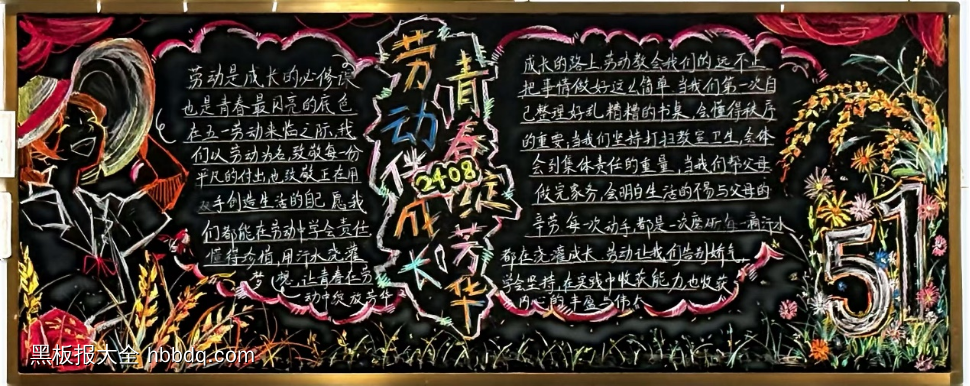 劳动伴成长
青春绽芳华
2408
劳动是成长的必修课
也是青春最闪亮的底色
在五一劳动来临之际,我
们以劳动为名,致敬每一份
平凡的付出,也致敬正在用
双手创造生活的自己,愿我
们都能在劳动中学会责任
懂得珍惜,用汗水浇灌
梦想,让青春在劳
动中绽放芳华
成长的路上,劳动教会我们的远不止
把事情做好这么简单,当我们第一次自
己整理好乱糟糟的书桌,会懂得秩序
的重要,当我们坚持打扫教室卫生,会体
会到集体责任的重量,当我们帮父母
做完家务,会明白生活的不易与父母的
辛劳,每一次动手,都是一次磨砺每一滴汗水
都在浇灌成长,劳动让我们告别娇气,
学会坚持,在实践中收获能力,也收获
内心的丰盈与
51
黑板报大全 hbbdq.com